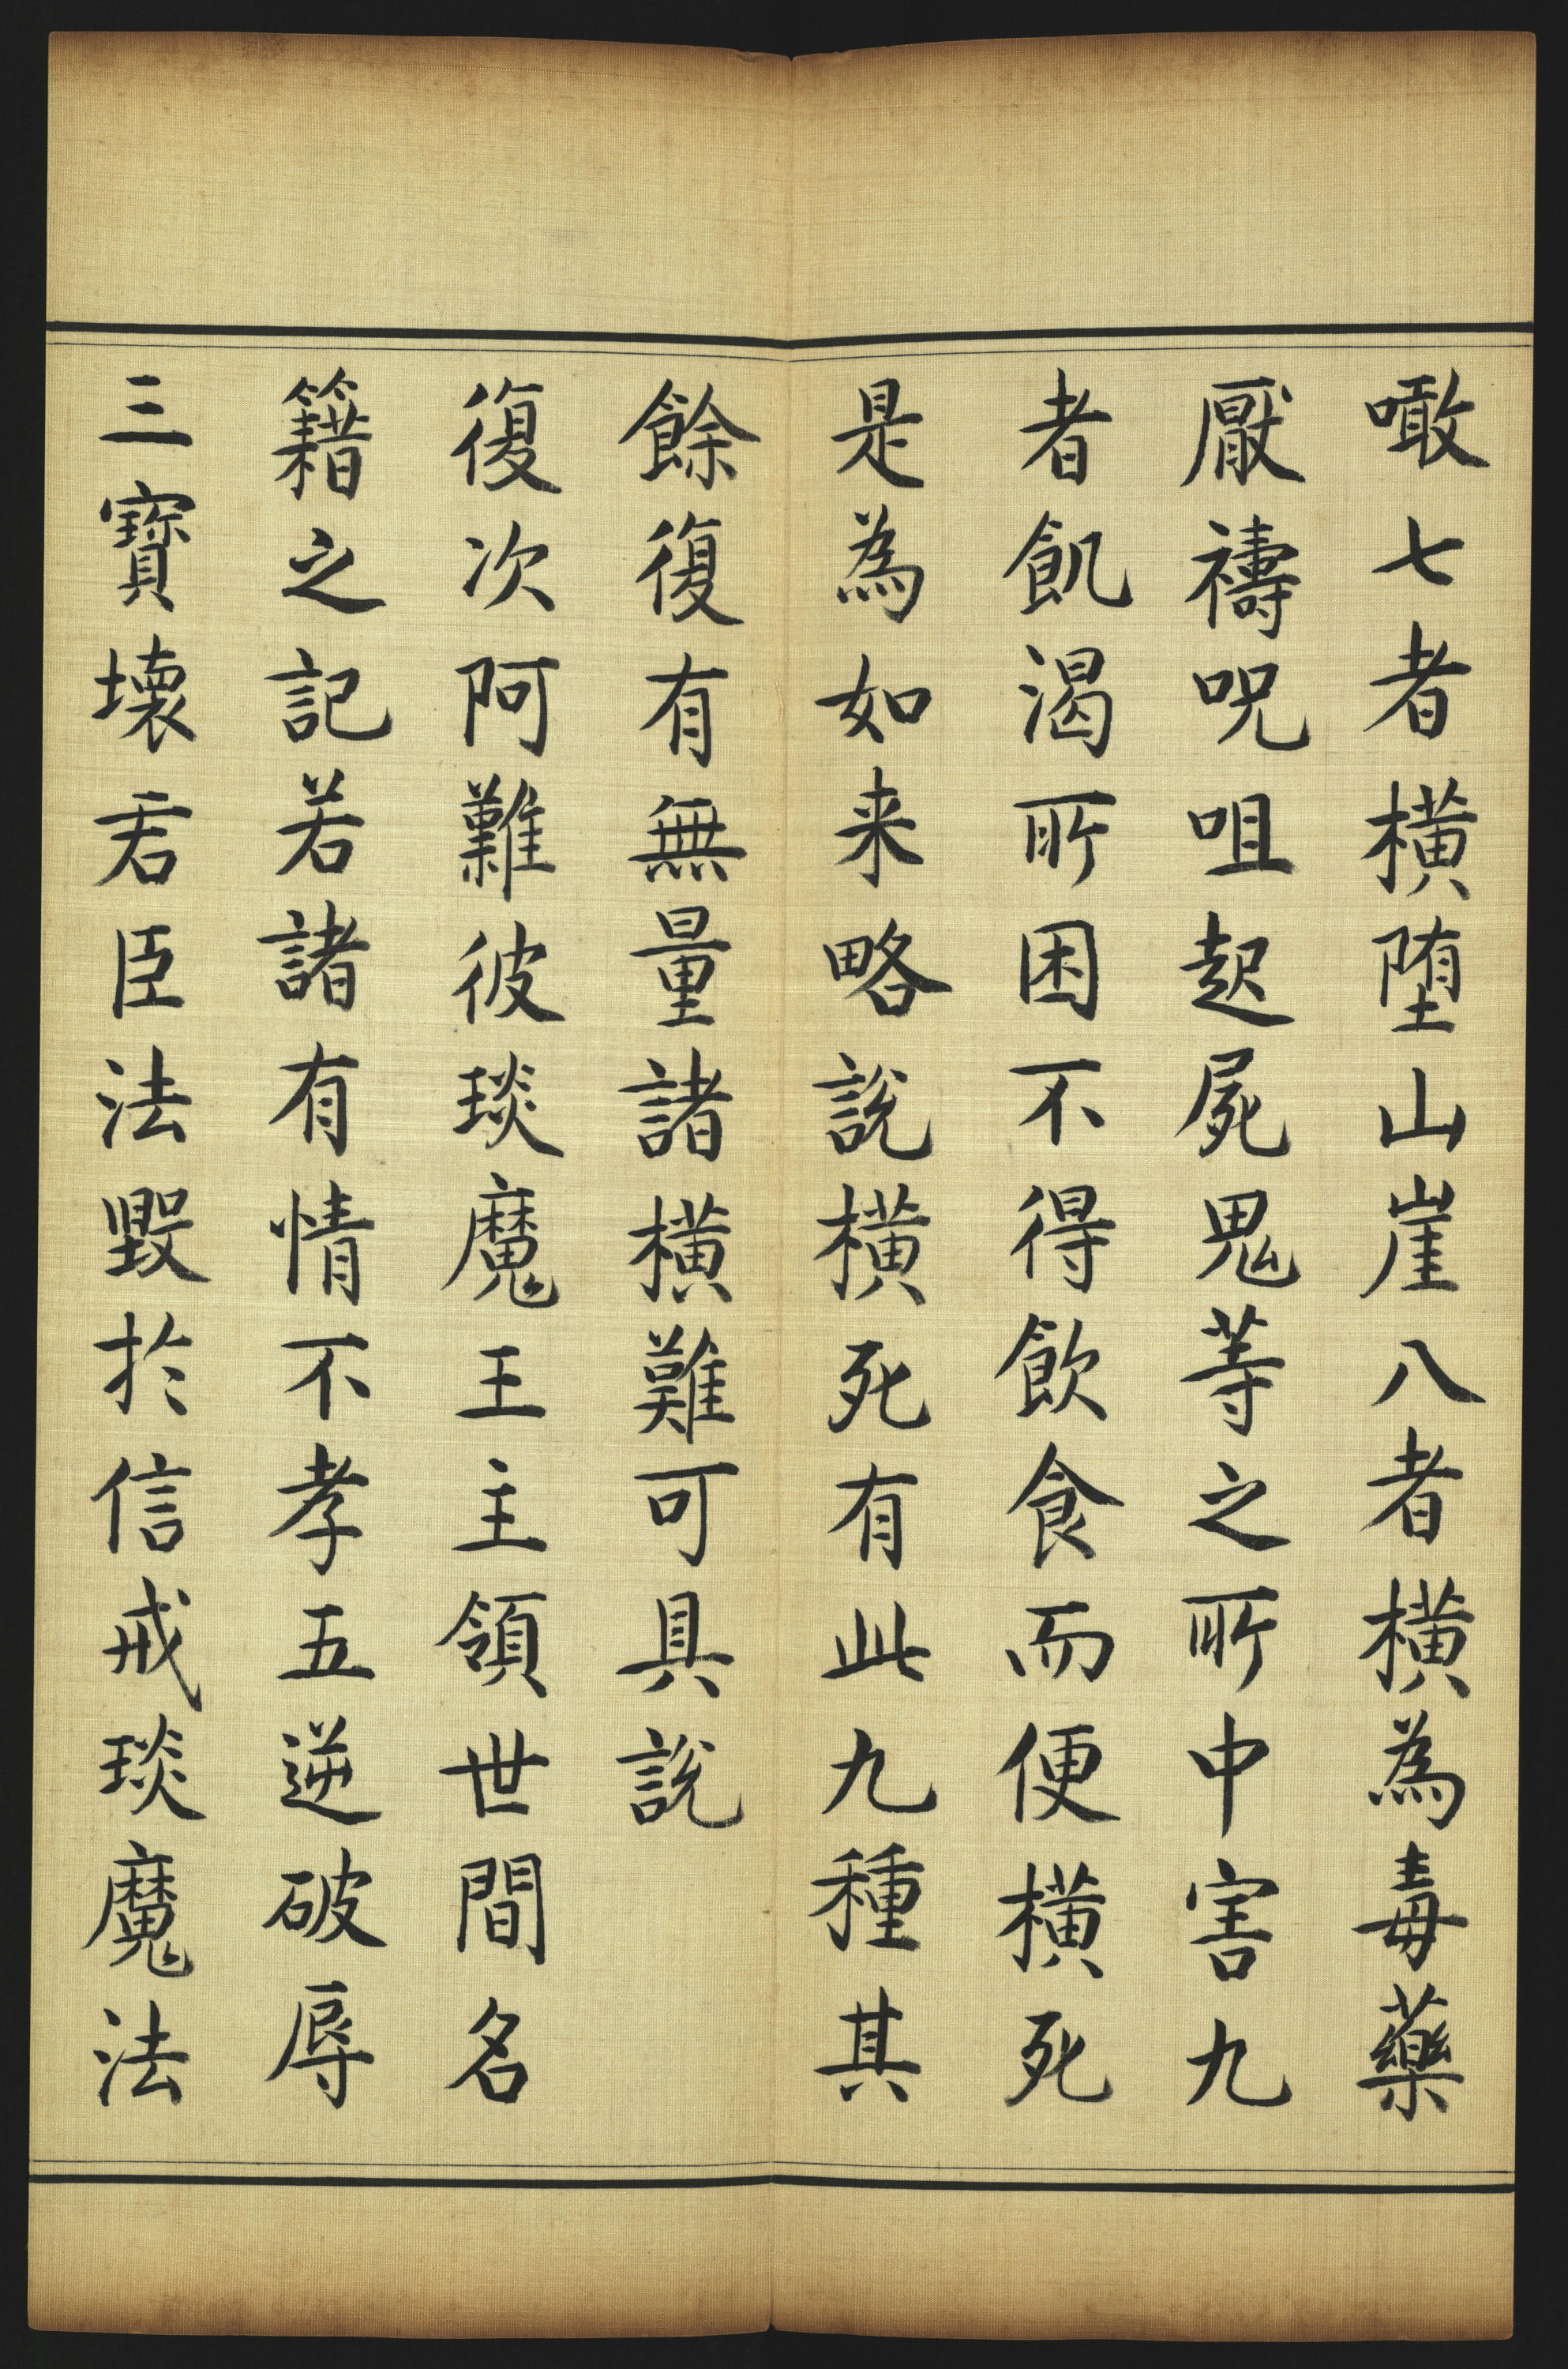 噉七者橫墮山崖八者橫為毒藥
厭禱呪咀起屍鬼等之所中害九
者飢渴所困不得飲食而便橫死
是為如来略說橫死有此九種其
餘復有無量諸橫難可具說
復次阿難彼琰魔王主領世間名
籍之記若諸有情不孝五逆破辱
三寶壞君臣法毀於信戒琰魔法